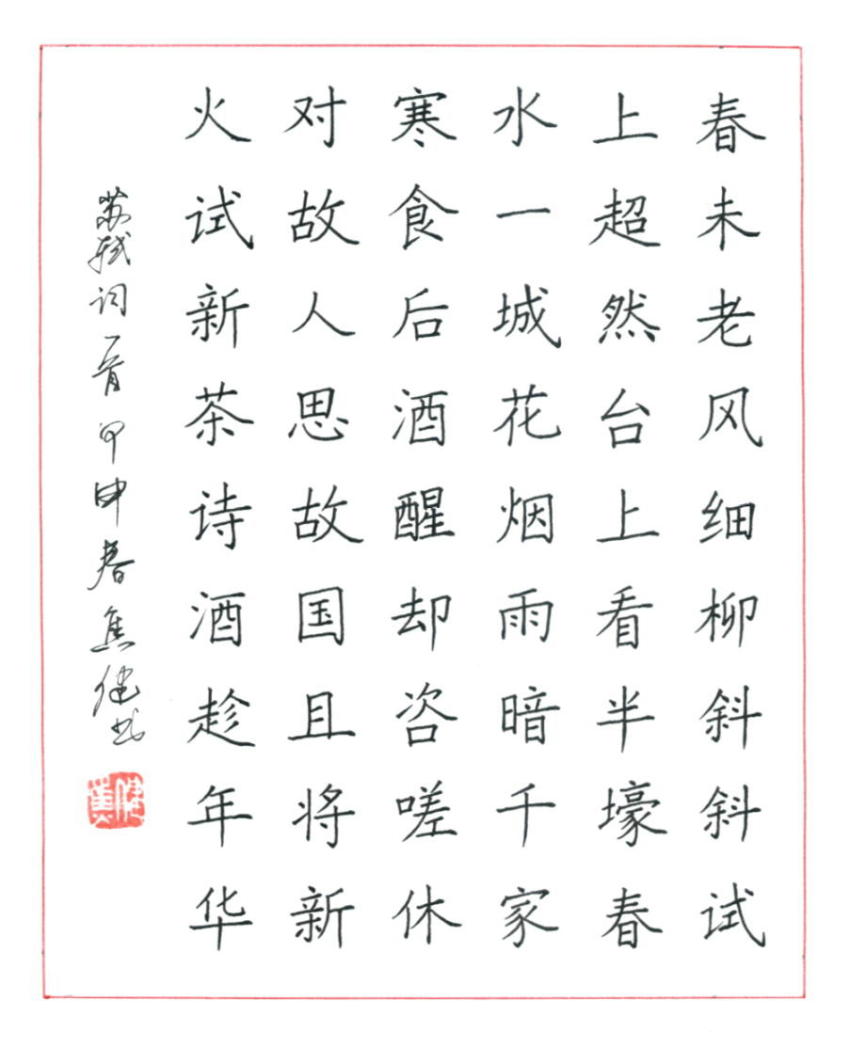 春未老风细柳斜斜试
上超然台上看半壕春
水一城花烟雨暗千家
寒食后酒醒却咨嗟休
对故人思故国且将新
火试新茶诗酒趁年华
苏轼词一首甲申春焦健书
焦健